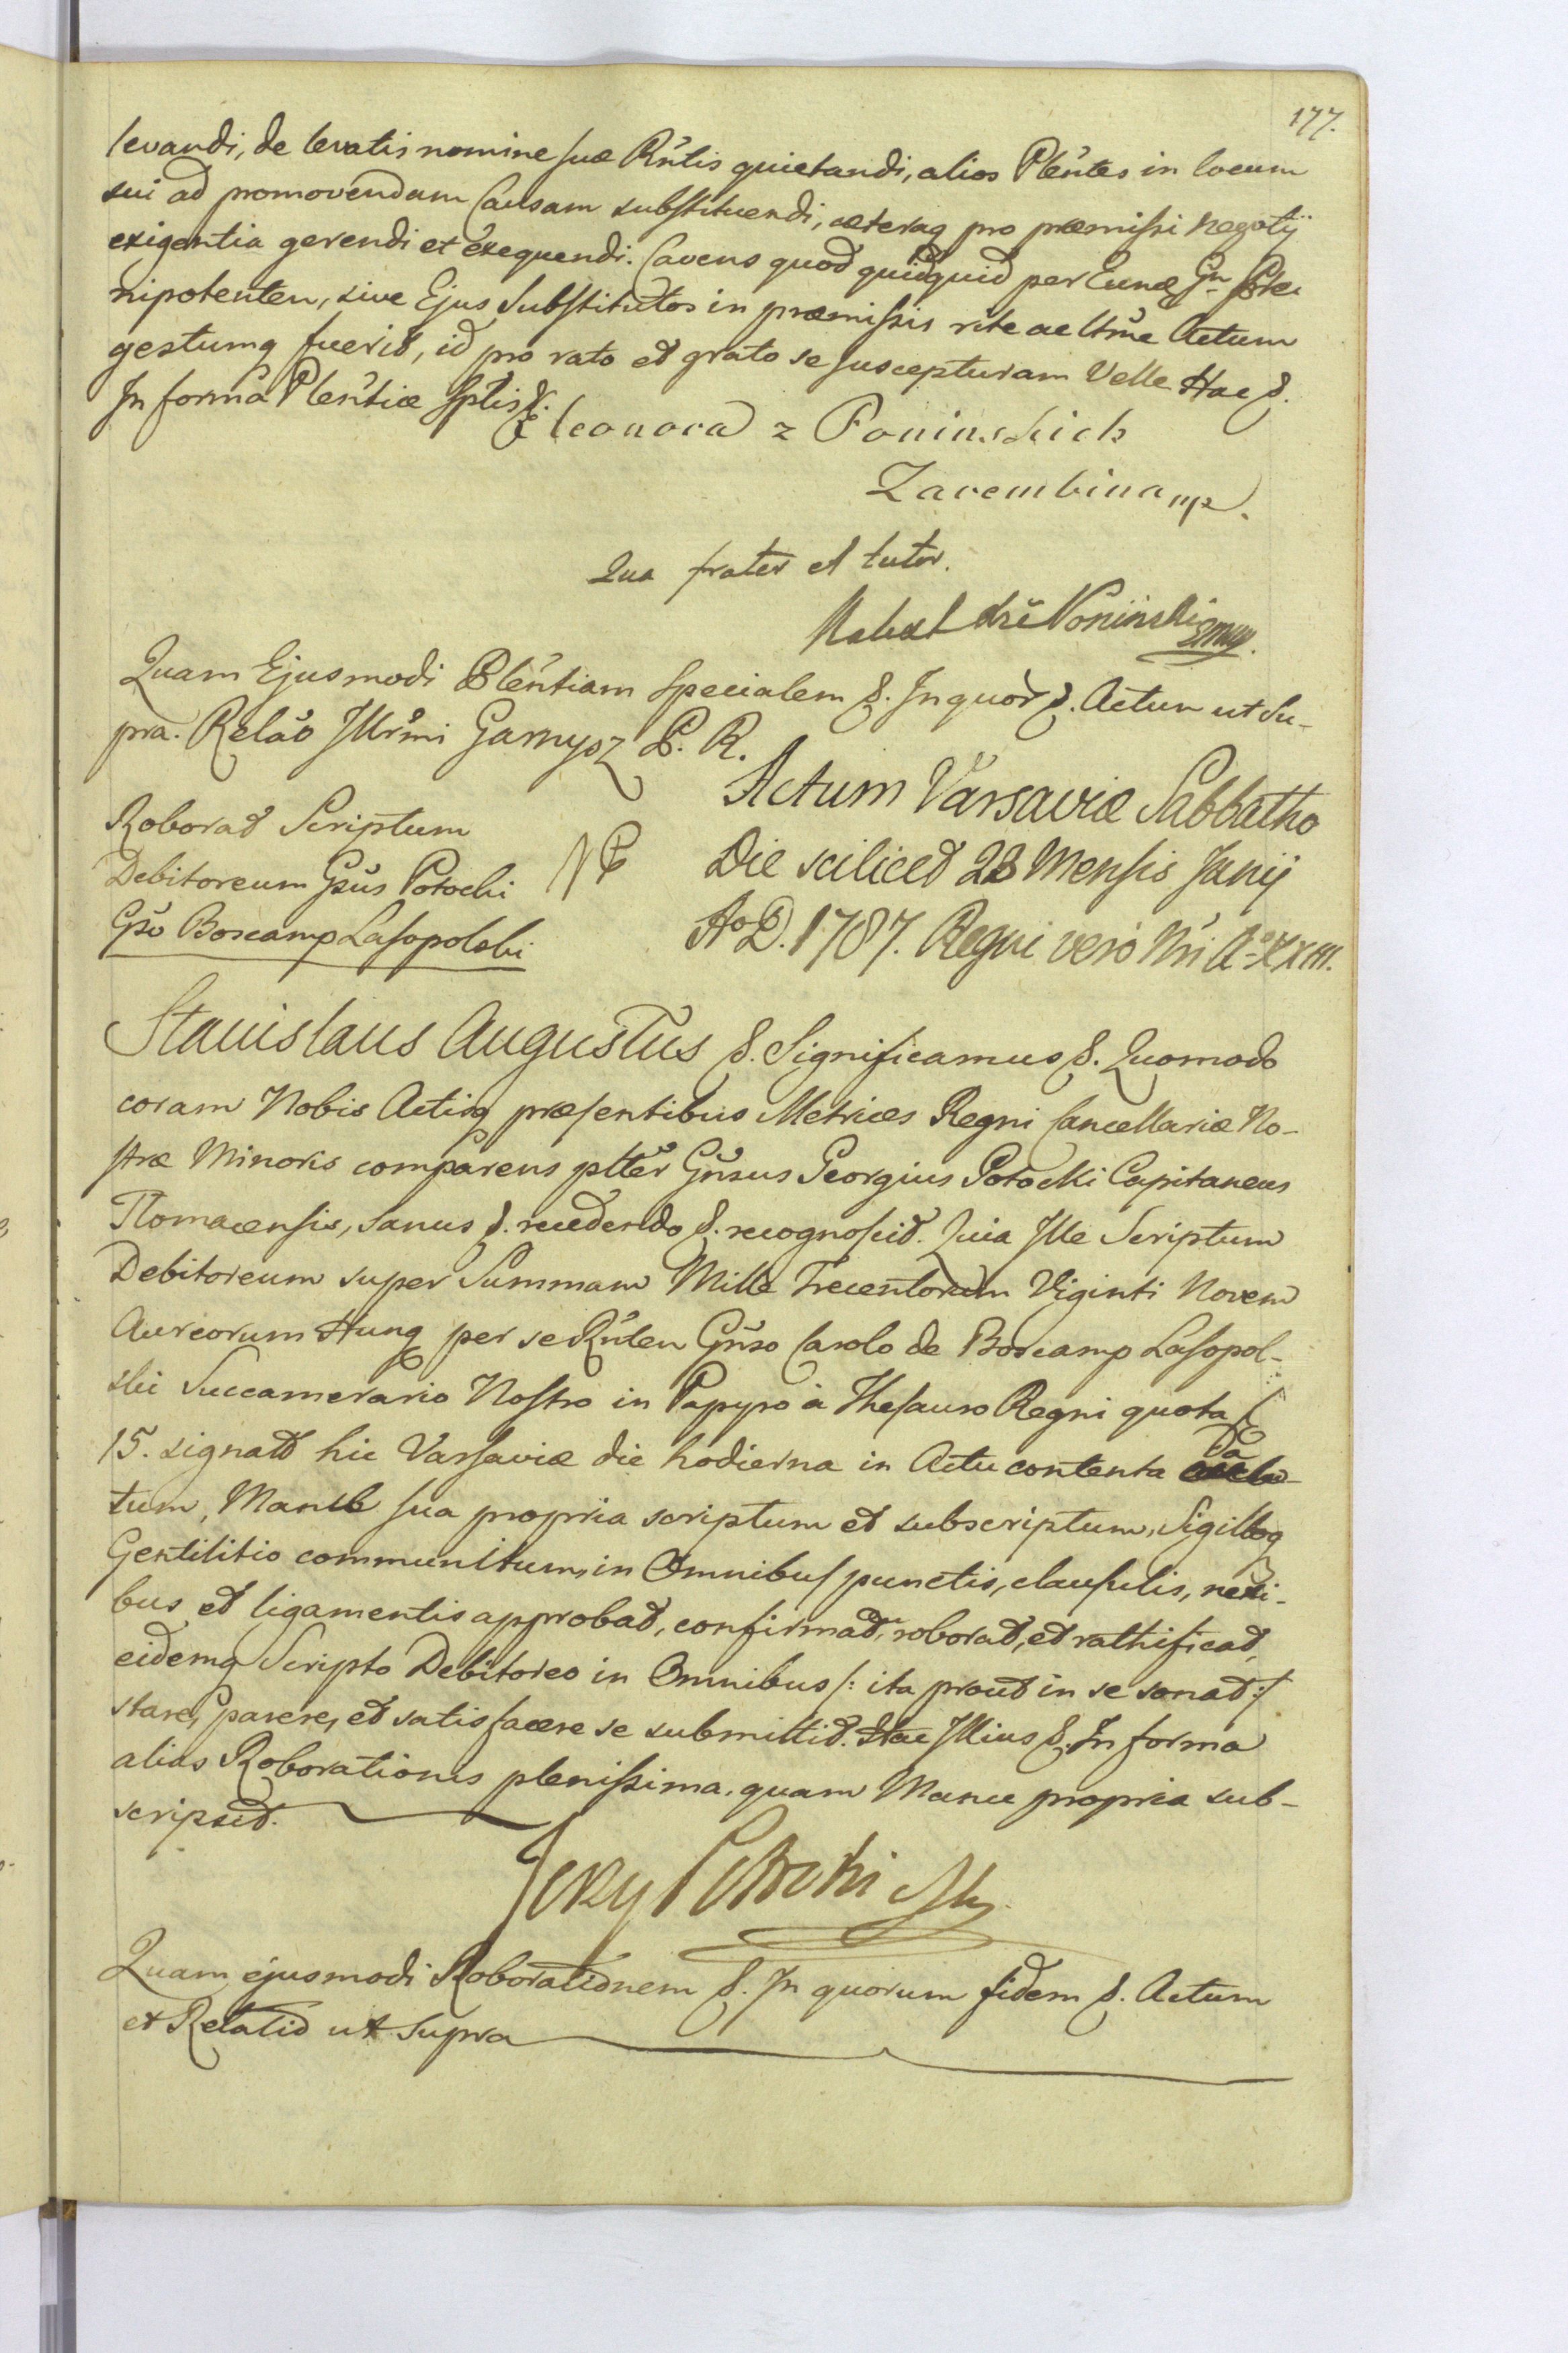 177.
levandi, de levatis nomine suæ Rñtis quietandi, alios Pleñtes in locum
sui ad promovendam Causam substituendi, cæteraq pro præmissi negotij
exigentia gerendi et exequendi. Cavens quod quidquid per Eundq Gñ Ple-
nipotenten, sive Ejus Substitutos in præmissis rite ac ltme Actum
gestumq fuerit, id pro rato et grato se suscepturam Velle Hac &.
In forma Pleñtiæ Splis &.
Eleonora z Poninskich
Zarembina mp.
Qua frater et tutor.
Kalixt Poninski mp.
Quam Ejusmodi Pleñtiam Specialem &. In quor &. Actum ut Su-
pra. Relao Illrmi Garnysz P. R.
Actum Varsaviæ Sabbatho
Die scilicet 23 Mensis Junij
Ao D. 1787. Regni vero Nri Ao XXIII.
Roborat Scriptum
Debitoreum Gsus Potocki
Gso Boscamp Lasopolski
Stanislaus Augustus &. Significamus &. Quomodo
coram Nobis Actisq præsentibus Metrices Regni Cancellariæ No-
stræ Minoris comparens plter Gñsus Georgius Potocki Capitaneus
Tlomacensis, sanus &. recedendo &. recognoscit. Quia Ille Scriptum
Debitoreum super Summam Mille Trecentorum Viginti Novem
Aureorum Hung per se Rñtem Gñso Carolo de Boscamp Lasopol-
ski Succamerario Nostro in Papyro à Thesauro Regni quota
15. signato hic Varsaviæ die hodierna in Actu contenta da-
tum, Manu sua propria scriptum et subscriptum, Sigilloq
Gentilitio communitum, in Omnibus punctis, clausulis, nexi-
bus et ligamentis approbat, confirmat, roborat, et rathificat,
eidemq Scripto Debitoreo in Omnibus /: ita prout in se sonat :/
stare, parere, et satisfacere se submittit. Hac Illius &. In forma
alias Roborationis plenissima, quam Manu propria sub-
scripsit.
Jerzy Potocki
Quam ejusmodi Roborationem &. In quorum fidem &. Actum
et Relatio ut Supra